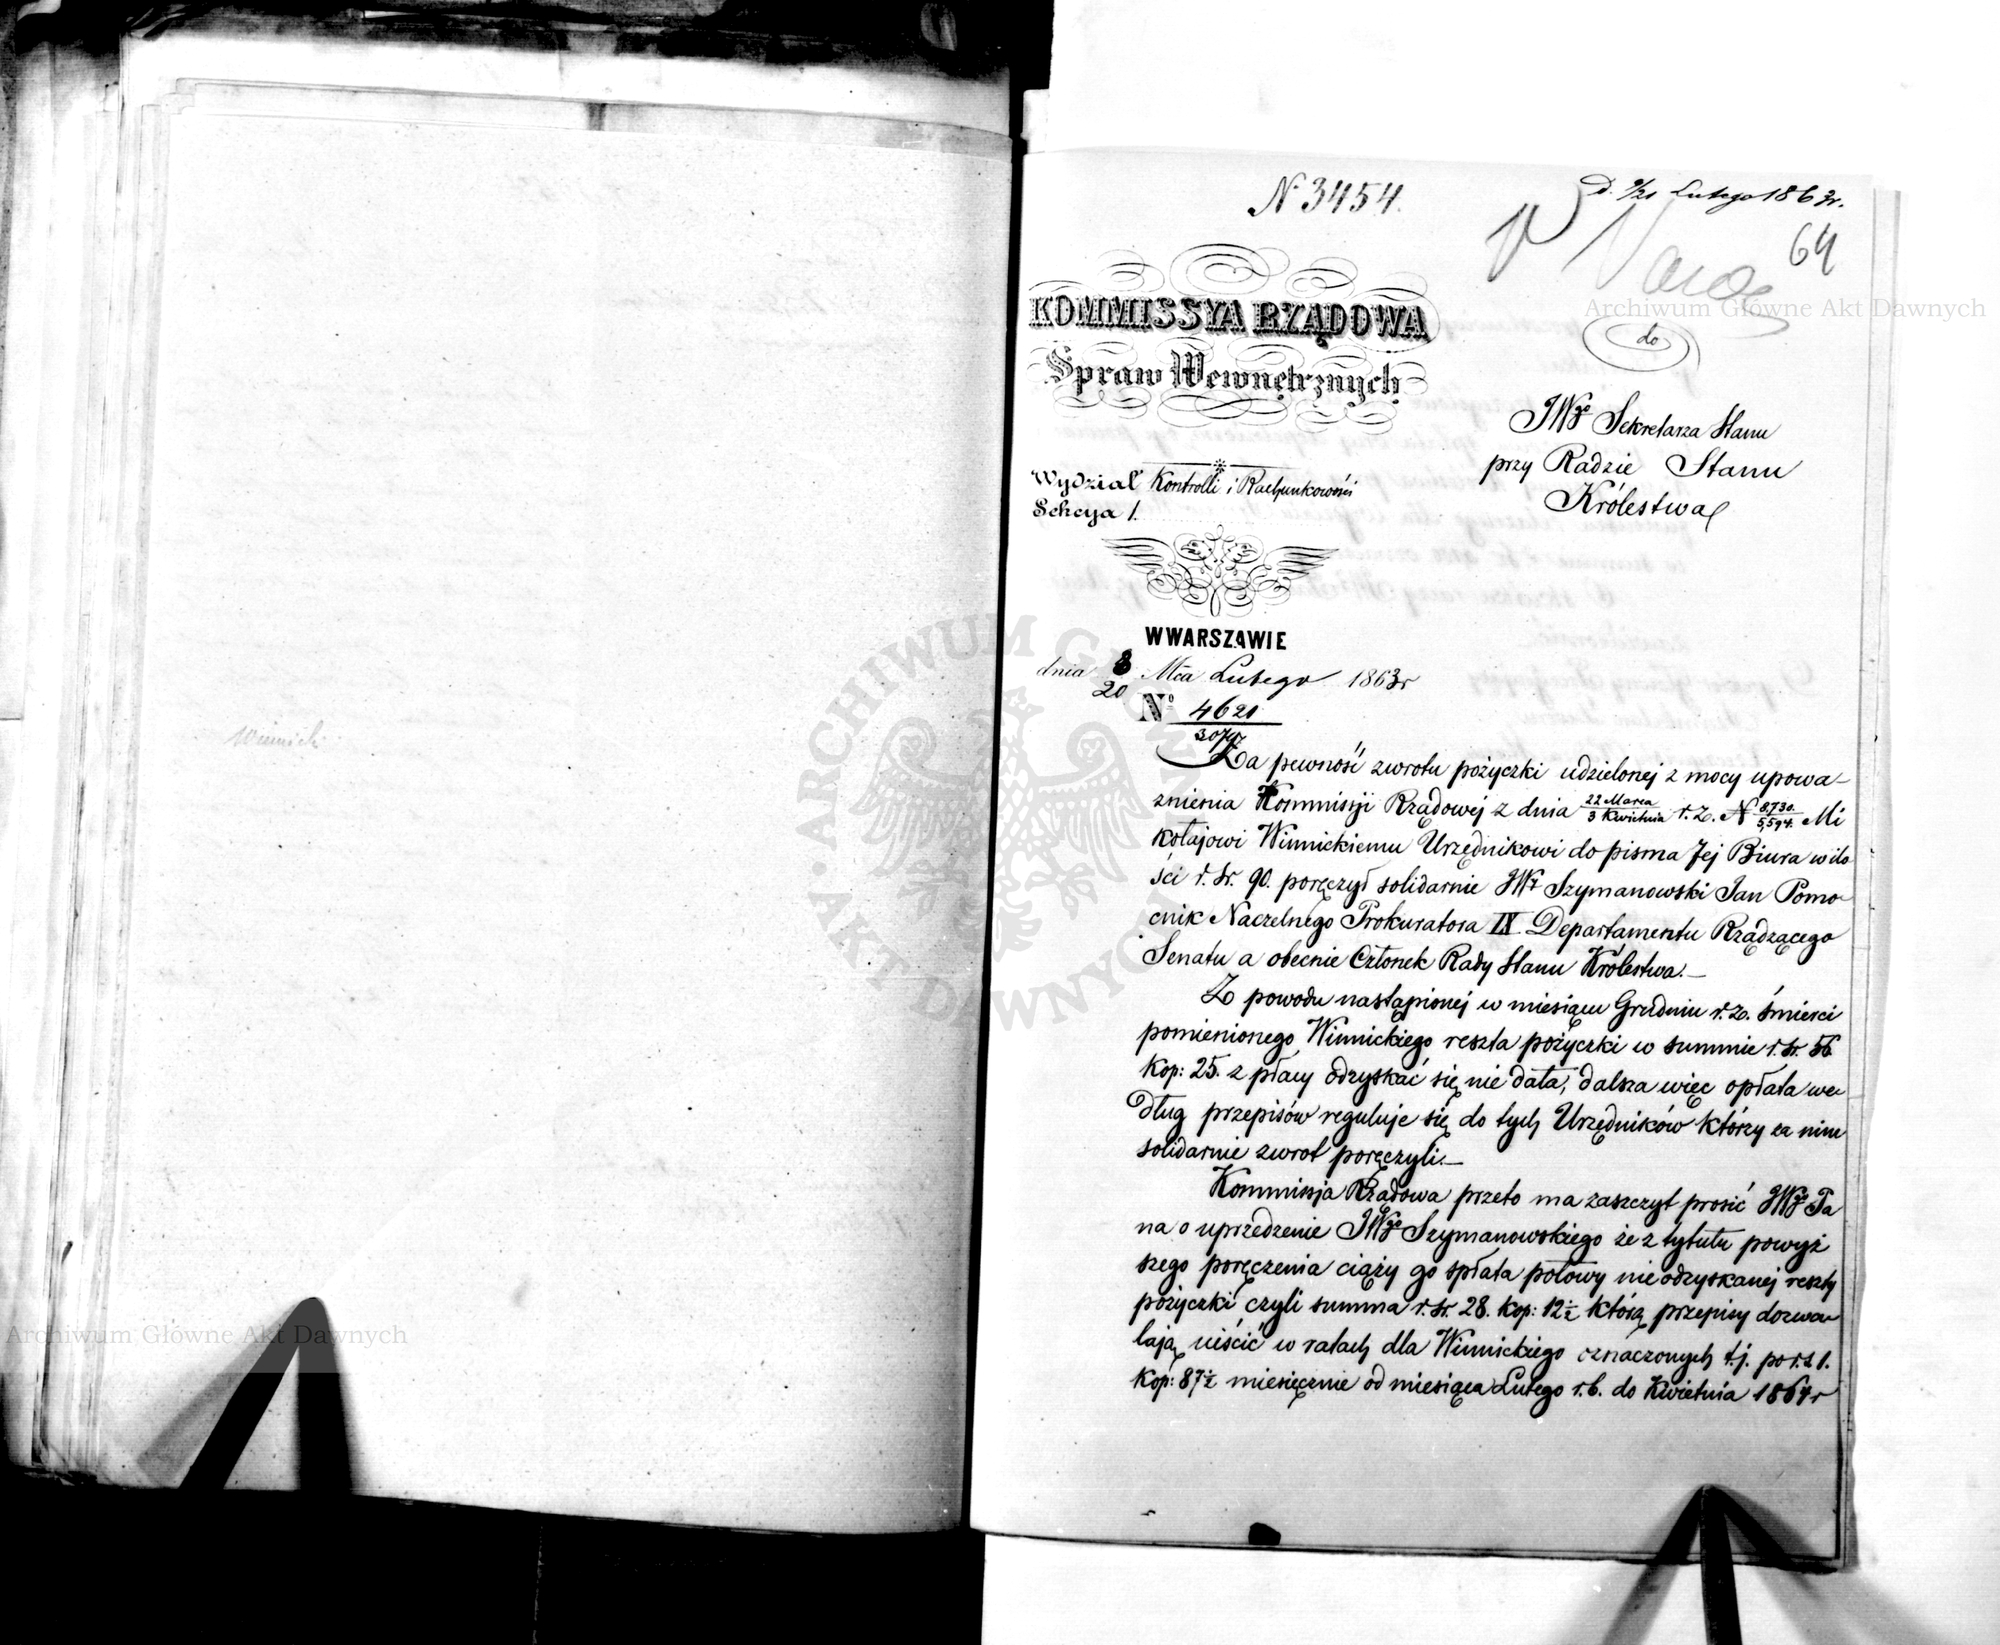 Winnicki
N 3454.
D. 9/21 Lutego 1863 r.
64
KOMMISSYA RZĄDOWA
Spraw Wewnętrznych
do
JWgo Sekretarza Stanu
przy Radzie Stanu
Królestwa
Wydział Kontrolli i Rachunkowości
Sekcya 1.
W WARSZAWIE
dnia 8/20 Mca Lutego 1863 r
No 4621/3077
Za pewność zwrotu pożyczki udzielonej z mocy upowa-
żnienia Kommissji Rządowej z dnia 22 Marca/3 Kwietnia r. z. N 8,730./5,594. Mi
kołajowi Winnickiemu Urzędnikowi do pisma Jej Biura w ilo
ści r. sr. 90. poręczył solidarnie JWy Szymanowski Jan Pomo-
cnik Naczelnego Prokuratora IX. Departamentu Rządzącego
Senatu a obecnie Członek Rady Stanu Królestwa.—
Z powodu nastąpionej w miesiącu Grudniu r. z. śmierci
pomienionego Winnickiego reszta pożyczki w summie r. sr. 56
kop: 25. z płacy odzyskać się nie dała, dalsza więc opłata we-
dług przepisów reguluje się do tych Urzędników którzy za nim
solidarnie zwrot poręczyli.—
Kommissja Rządowa przeto ma zaszczyt prosić JWgo Pa
na o uprzedzenie JWgo Szymanowskiego że z tytułu powyż
szego poręczenia ciąży go spłata połowy nieodzyskanej reszty
pożyczki czyli summa r. sr. 28. kop: 12½ którą przepisy dozwa-
lają uiścić w ratach dla Winnickiego oznaczonych t.j. po r. s 1.
kop: 87½ miesięcznie od miesiąca Lutego r. b. do Kwietnia 1864 r
Archiwum Główne Akt Dawnych
Archiwum Główne Akt Dawnych
ARCHIWUM GŁÓWNE AKT DAWNYCH